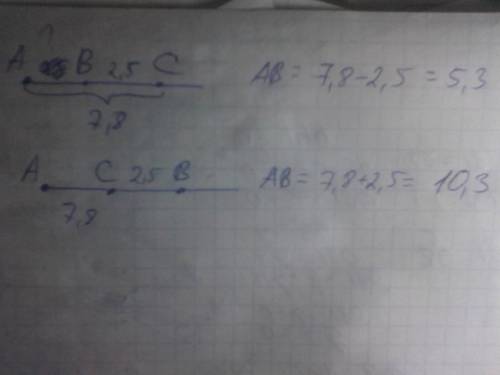 A B 2,5 C AB = 7,8 - 2,5 = 5,3
7,8
A C 2,5 B AB = 7,8 + 2,5 = 10,3
7,8